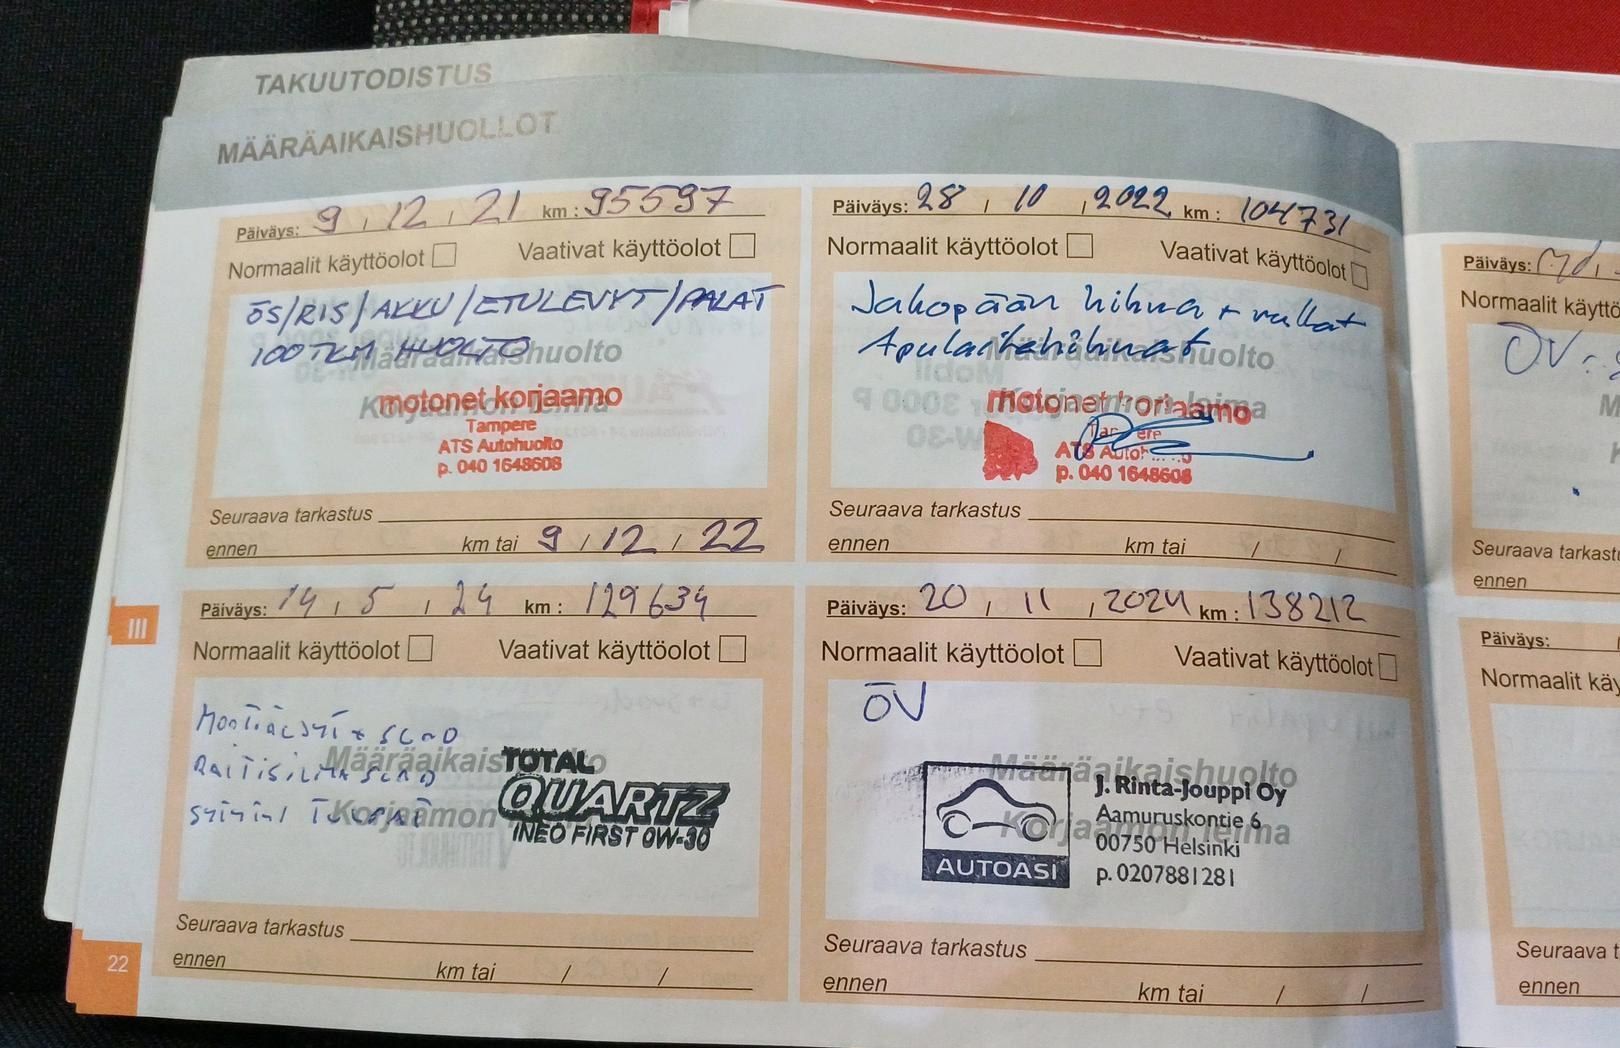 TAKUUTODISTUS
MÄÄRÄAIKAISHUOLLOT
Päiväys: 9 / 12 / 21 km : 95597
Normaalit käyttöolot Vaativat käyttöolot
ÖS/RIS/AKKU/ETULEVYT/PALAT
100TKM HUOLTO
Määräaikaishuolto
Korjaamon leima
motonet korjaamo
Tampere
ATS Autohuolto
p. 040 1648608
Seuraava tarkastus
ennen km tai 9 / 12 / 22
Päiväys: 28 / 10 / 2022 km : 104731
Normaalit käyttöolot Vaativat käyttöolot
Jakopään hihna + rullat
Apulaitehihnat
Määräaikaishuolto
Korjaamon leima
motonet korjaamo
Tampere
ATS Autohuolto
p. 040 1648608
Seuraava tarkastus
ennen km tai / /
Päiväys: 14 / 5 / 24 km : 129634
Normaalit käyttöolot Vaativat käyttöolot
Määräaikaishuolto
Korjaamon
TOTAL
QUARTZ
INEO FIRST 0W-30
Seuraava tarkastus
ennen km tai / /
Päiväys: 20 / 11 / 2024 km : 138212
Normaalit käyttöolot Vaativat käyttöolot
ÖV
Määräaikaishuolto
Korjaamon leima
AUTOASI
J. Rinta-Jouppi Oy
Aamuruskontie 6
00750 Helsinki
p. 0207881281
Seuraava tarkastus
ennen km tai / /
III
22
Päiväys:
Normaalit käyttö
ÖV
Seuraava tarkast
ennen
Päiväys:
Normaalit käy
Seuraava t
ennen